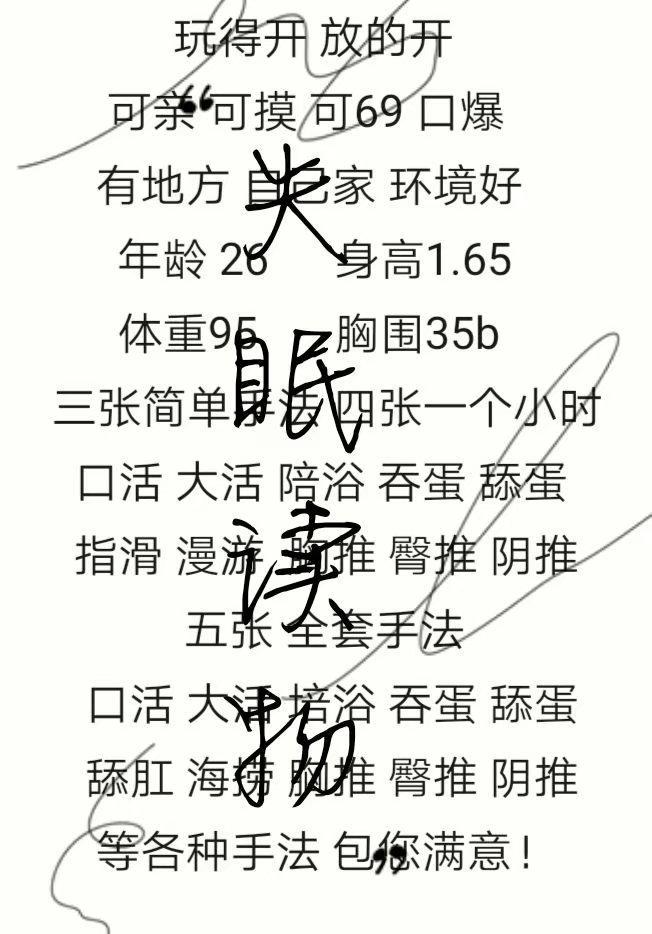 玩得开 放的开
可亲 可摸 可69 口爆
有地方 自己家 环境好
年龄 26 身高1.65
体重95 胸围35b
三张简单手法 四张一个小时
口活 大活 陪浴 吞蛋 舔蛋
指滑 漫游 胸推 臀推 阴推
五张 全套手法
口活 大活 培浴 吞蛋 舔蛋
舔肛 海捞 胸推 臀推 阴推
等各种手法 包您满意！
“
失
眠
读
物
”